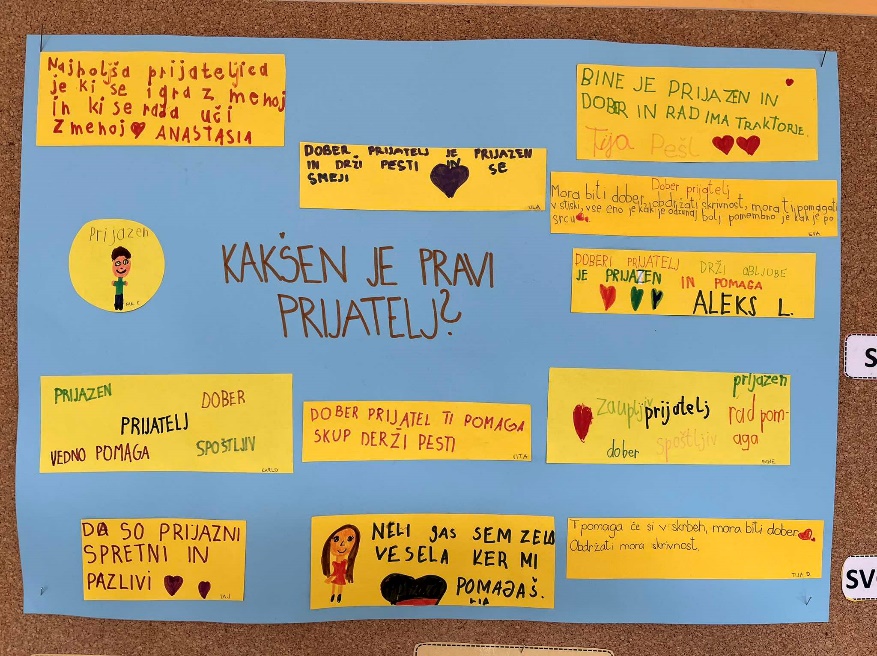 Najboljša prijateljica
je ki se igra z menoj
in ki se rada uči
Zmenoj ANASTASIA
DOBER PRIJATELJ JE PRIJAZEN
IN DRŽI PESTI IN SE
SMEJI
ULA
BINE JE PRIJAZEN IN
DOBER IN RAD IMA TRAKTORJE.
Tija Pešl
Dober prijatelj
Mora biti dober, obdržati skrivnost, mora ti pomagati
v stiski, vse eno je kak je odzunaj bolj pomembno je kak je po
srcu
Prijazen
KAKŠEN JE PRAVI
PRIJATELJ?
DOBERI PRIJATELJ DRŽI OBLJUBE
JE PRIJAZEN IN POMAGA
ALEKS L.
PRIJAZEN DOBER
PRIJATELJ
VEDNO POMAGA SPOŠTLJIV
DOBER PRIJATEL TI POMAGA
SKUP DERŽI PESTI
VITA
prijazen
Zaupljiv prijatelj rad pom-
aga
dober spoštljiv
DA SO PRIJAZNI
SPRETNI IN
PAZLIVI
TAJ
NELI gas SEM ZELO
VESELA KER MI
POMAGAŠ.
LIA
T pomaga če si v skrbeh, mora biti dober
Obdržati mora skrivnost.
TIJA D.
SV